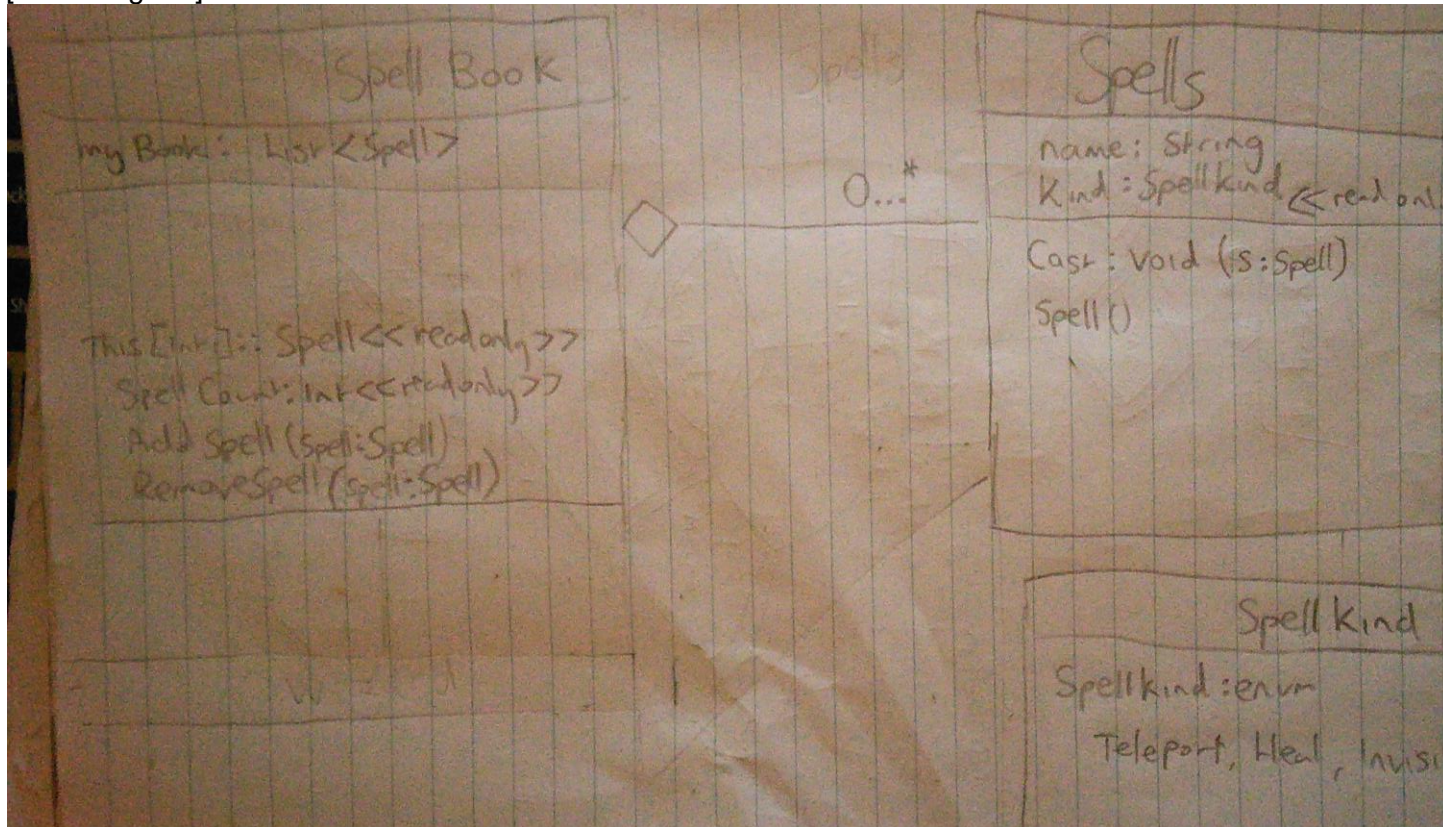 Spell Book
my Book : List <Spell>
This [int] :: Spell << readonly >>
Spell Count : int << readonly >>
Add Spell (spell:Spell)
RemoveSpell (spell:Spell)
Spells
0...*
Spells
name: String
Kind : Spellkind << read onl
Cast : void (s:Spell)
Spell ()
Spell Kind
Spellkind : enum
Teleport, Heal, Invisi